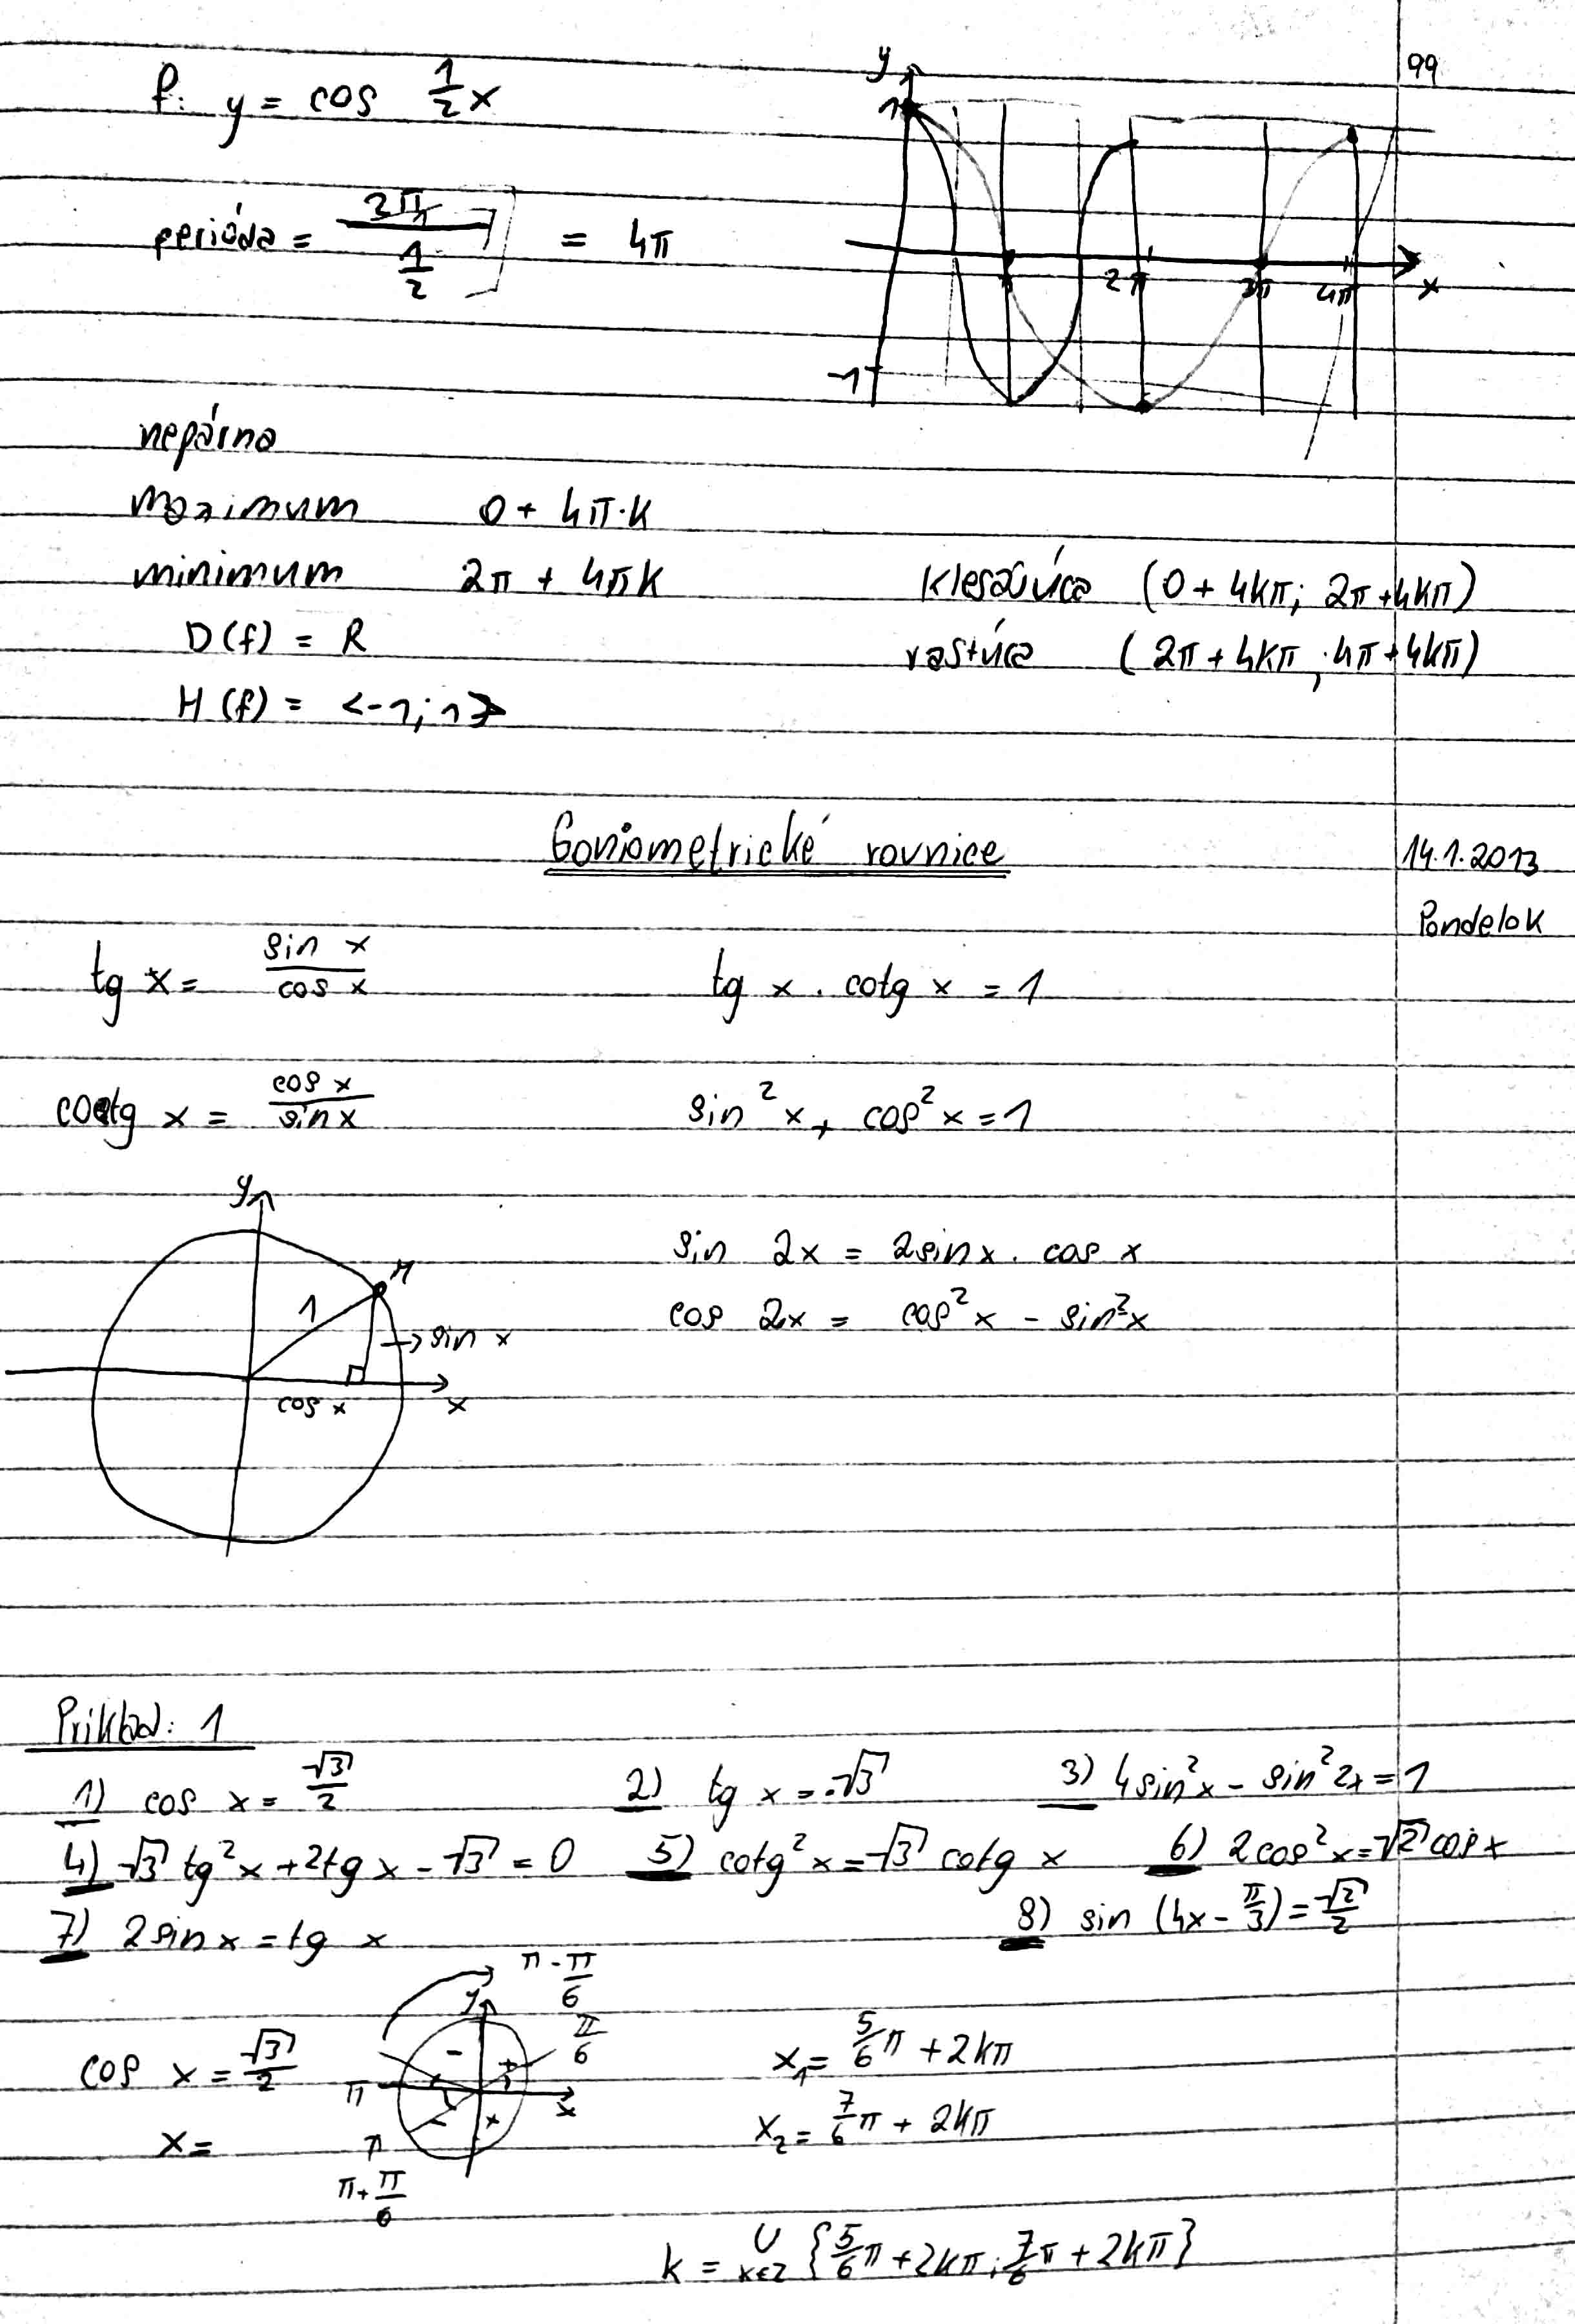 99
f: y = cos 1/2 x
y
1
perióda = 2π / 1/2 = 4π
2π 3π 4π x
-1
nepárna
maximum 0 + 4π·k
minimum 2π + 4πk klesajúca (0 + 4kπ; 2π + 4kπ)
D(f) = R rastúca (2π + 4kπ, 4π + 4kπ)
H(f) = <-1; 1>
Goniometrické rovnice 14.1.2013
Pondelok
tg x = sin x / cos x tg x . cotg x = 1
cotg x = cos x / sin x sin²x + cos²x = 1
y
M
1
sin 2x = 2sin x . cos x
cos 2x = cos²x - sin²x
→ sin x
cos x x
Priklad: 1
1) cos x = √3/2 2) tg x = -√3 3) 4sin²x - sin²2x = 1
4) √3 tg²x + 2tg x - √3 = 0 5) cotg²x = √3 cotg x 6) 2cos²x = √2 cos x
7) 2sin x = tg x 8) sin (4x - π/3) = √2/2
π - π/6
y π/6
cos x = √3/2 - + x₁ = 5/6 π + 2kπ
π x
x = - + x₂ = 7/6 π + 2kπ
π + π/6
k = ∪ k∈Z {5/6 π + 2kπ; 7/6 π + 2kπ}